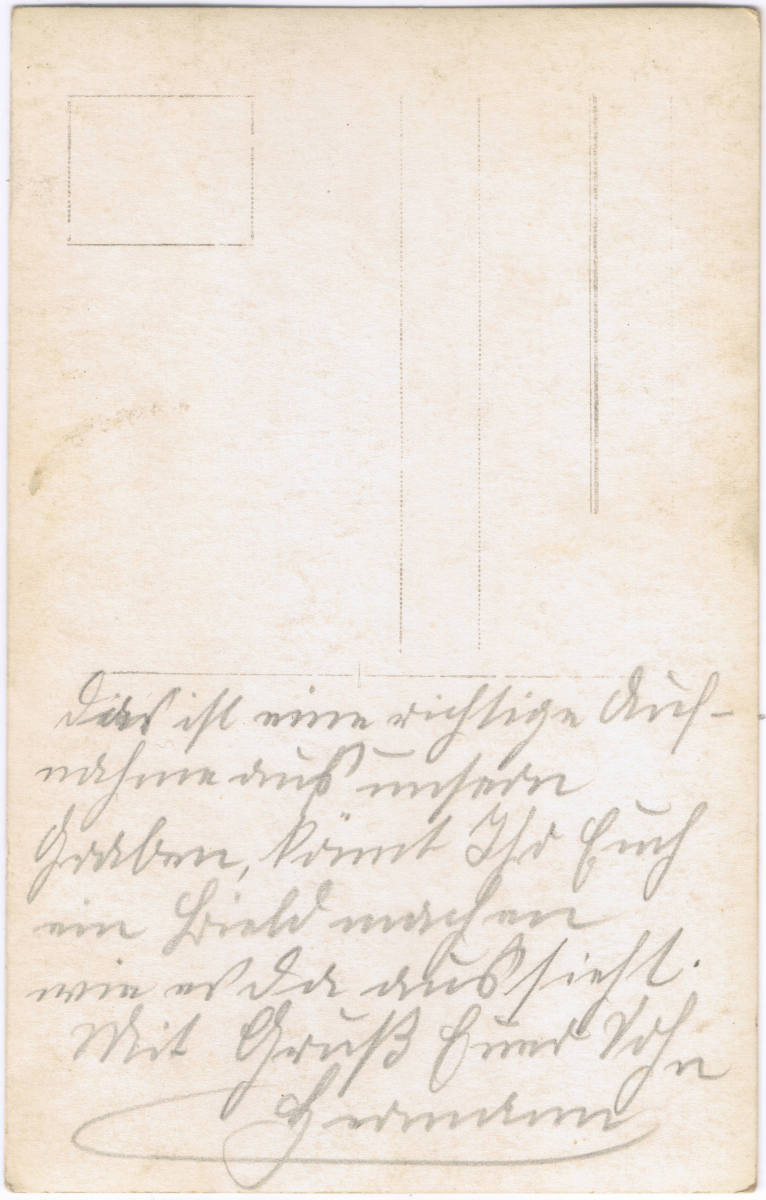 Dies ist eine richtige Auf-
nahme aus unsern
Graben, könnt Ihr Euch
ein Bield machen
wie es da aussieht.
Mit Gruß Euer Sohn
Hermann